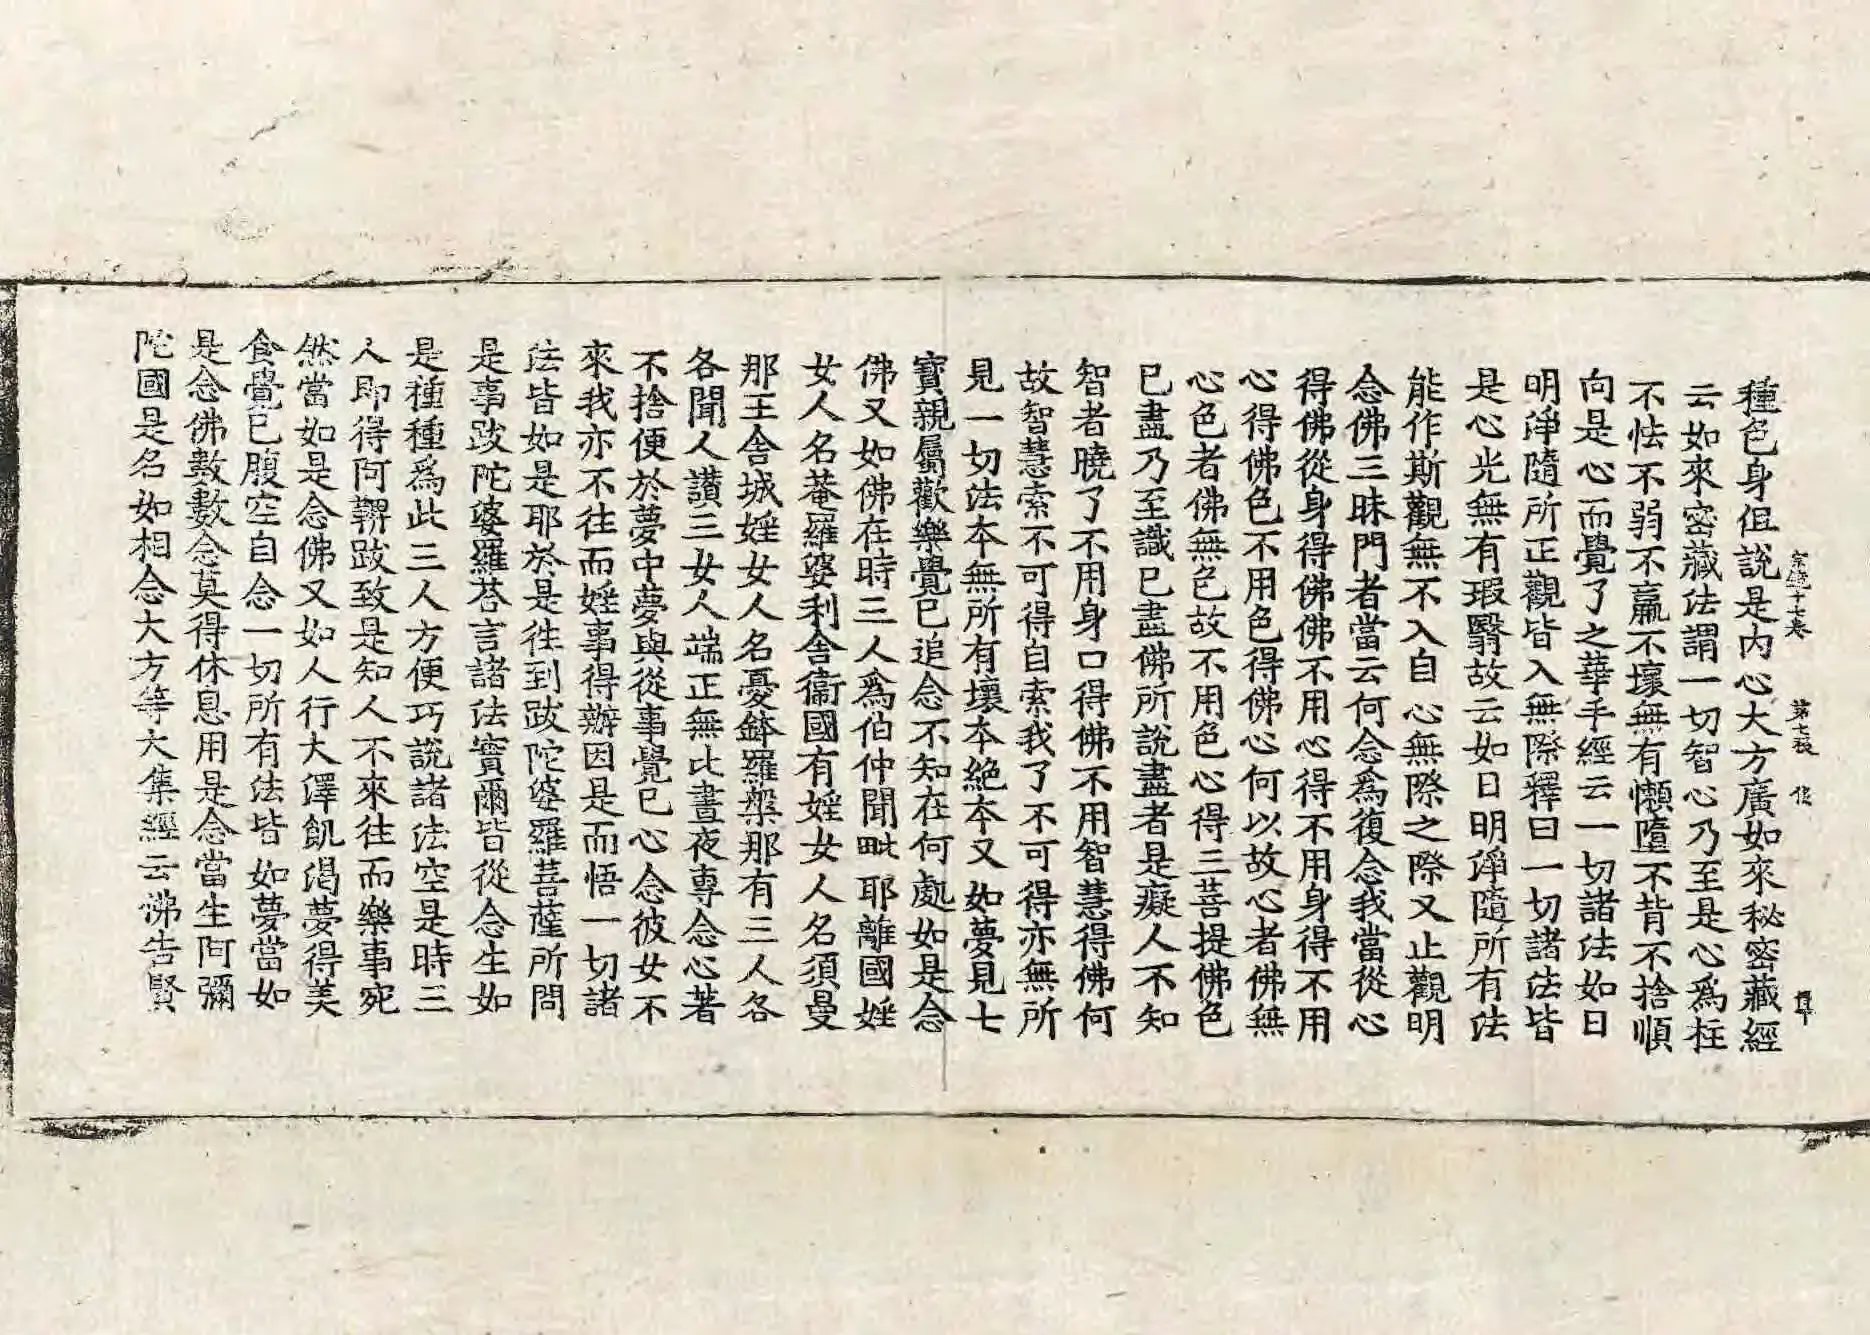 宗鏡十七卷 第七張 俊
種色身但說是內心大方廣如來秘密藏經
云如來密藏法謂一切智心乃至是心爲柱
不怯不弱不羸不壞無有懶墮不背不捨順
向是心而覺了之華手經云一切諸法如日
明淨隨所正觀皆入無際釋曰一切諸法皆
是心光無有瑕翳故云如日明淨隨所有法
能作斯觀無不入自心無際之際又止觀明
念佛三昧門者當云何念爲復念我當從心
得佛從身得佛佛不用心得不用身得不用
心得佛色不用色得佛心何以故心者佛無
心色者佛無色故不用色心得三菩提佛色
已盡乃至識已盡佛所說盡者是癡人不知
智者曉了不用身口得佛不用智慧得佛何
故智慧索不可得自索我了不可得亦無所
見一切法本無所有壞本絕本又如夢見七
寶親屬歡樂覺已追念不知在何處如是念
佛又如佛在時三人爲伯仲聞毗耶離國婬
女人名菴羅婆利舍衞國有婬女人名須曼
那王舍城婬女人名憂鉢羅槃那有三人各
各聞人讚三女人端正無比晝夜專念心著
不捨便於夢中夢與從事覺已心念彼女不
來我亦不往而婬事得辦因是而悟一切諸
法皆如是耶於是往到跋陀婆羅菩薩所問
是事跋陀婆羅荅言諸法實爾皆從念生如
是種種爲此三人方便巧說諸法空是時三
人即得阿鞞跋致是知人不來往而樂事宛
然當如是念佛又如人行大澤飢渴夢得美
食覺已腹空自念一切所有法皆如夢當如
是念佛數數念莫得休息用是念當生阿彌
陀國是名如相念大方等大集經云佛告賢